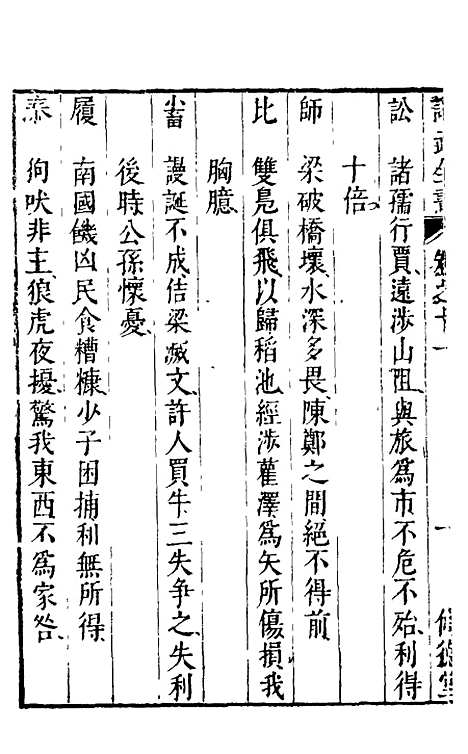 訟　諸孺行賈遠涉山阻與旅爲市不危不殆利得
十倍
師　梁破橋壞水深多畏陳鄭之間絕不得前
比　雙鳧俱飛以歸稻池經涉萑澤爲矢所傷損我
胸臆
小畜　謾誕不成佶梁滅文許人買牛三失爭之失利
後時公孫懷憂
履　南國饑凶民食糟糠少子困捕利無所得
泰　狗吠非主狼虎夜擾驚我東西不爲家咎